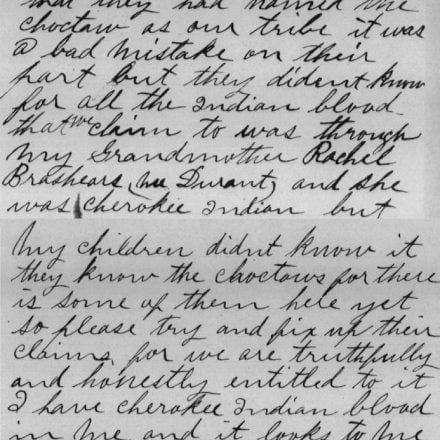 that they had named the
choctaw as our tribe it was
a bad mistake on their
part but they dident know
for all the indian blood
that we claim to was through
my Grandmother Rachel
Brashears (nee Durant) and she
was cherokee indian but
my children didnt know it
they know the choctaws for there
is some of them here yet
so please try and fix up their
claims for we are truthfully
and honestly entitled to it
I have cherokee indian blood
in me and it looks to me